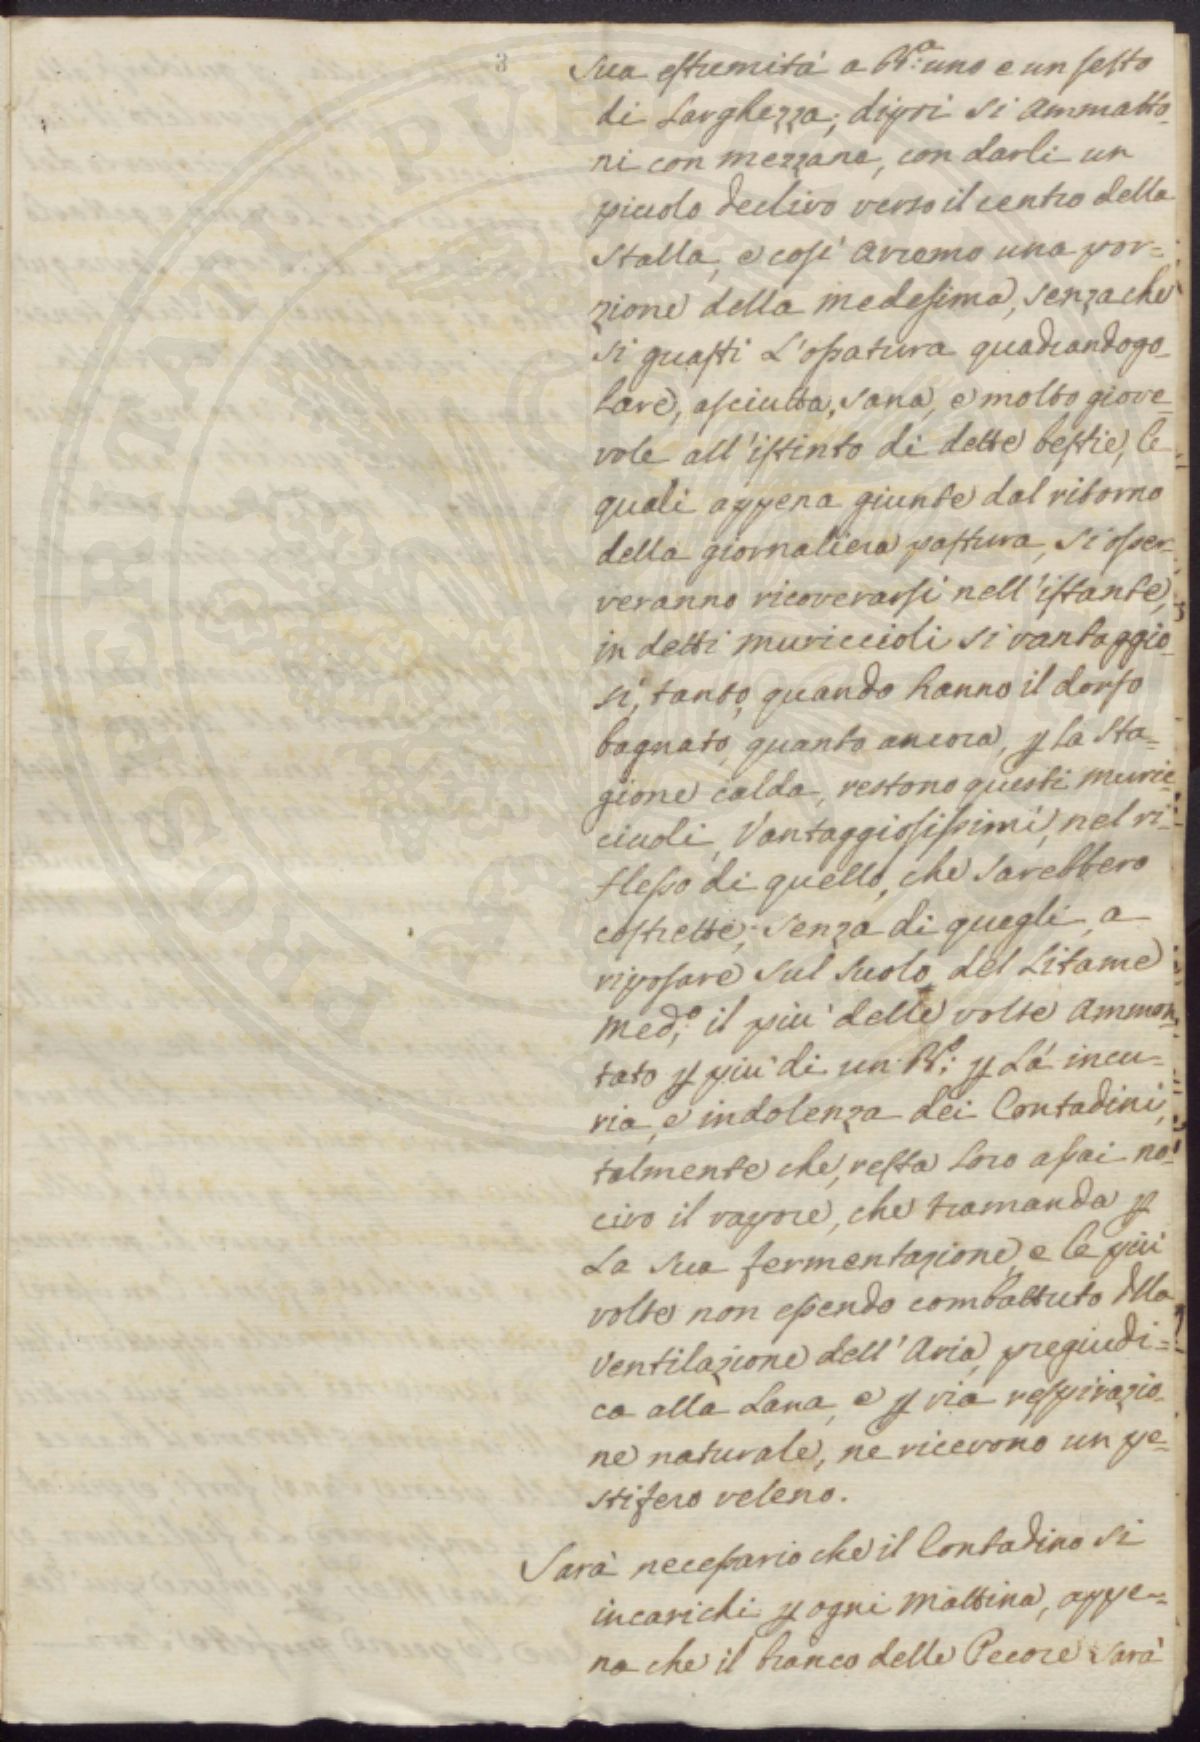 3
sua estremità a B.ª uno e un sesto
di Larghezza; dipoi si Ammatto-
ni con mezzane, con darli un
piccolo declivo verso il centro della
Stalla, e così avremo una por=
zione della medesima, senza che
si guasti L'ossatura quadrandogo-
lare, asciutta, sana, e molto giove-
vole all'istinto di dette bestie, le
quali appena giunte dal ritorno
della giornaliera pastura, si osser-
veranno ricoverarsi nell'istante,
in detti muriccioli si vantaggio-
si, tanto, quando hanno il dorso
bagnato, quanto ancora, p la Sta=
gione calda, restono questi muric-
ciuoli, Vantaggiosissimi, nel ri-
flesso di quello, che sarebbero
costrette, senza di quegli, a
riposare sul suolo del Litame
med.º il più delle volte Ammon-
tato p più di un B.º; p Là incu-
ria, e indolenza dei Contadini,
talmente che, resta Loro assai no-
civo il vapore, che tramanda p
La sua fermentazione, e le più
volte non essendo combattuto dlla
Ventilazione dell'Aria, pregiudi=
ca alla Lana, e p via respirazio-
ne naturale, ne ricevono un pe=
stifero veleno.
Sarà necessario che il Contadino si
incarichi p ogni Mattina, appe=
na che il branco delle Pecore sarà
PROSPERINATI PUBL